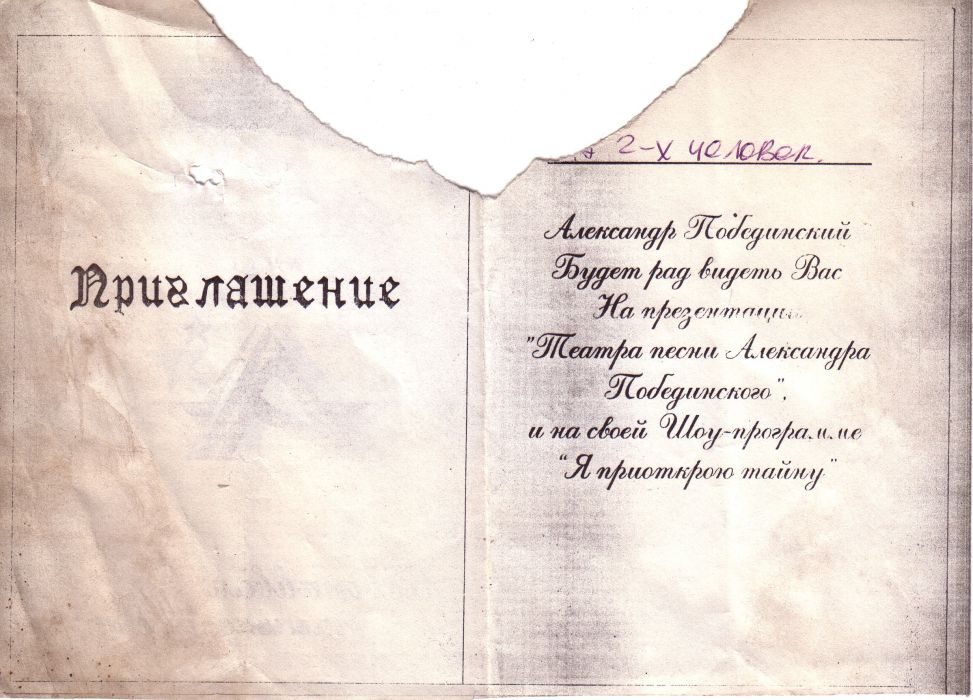 Приглашение
2-х человек.
Александр Побединский
Будет рад видеть Вас
На презентации
"Театра песни Александра
Побединского",
и на своей Шоу-программе
"Я приоткрою тайну"